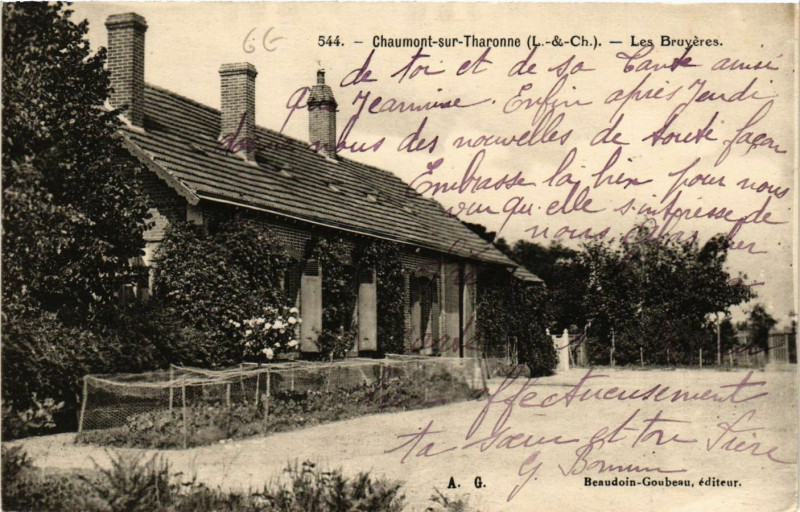 66
544. - Chaumont-sur-Tharonne (L.-&-Ch.). - Les Bruyères.
de toi et de sa tante ainsi
que Jeannine. Enfin après Jeudi
donne nous des nouvelles de toute façon
Embrasse la bien pour nous
qu'elle s'intéresse de
nous
affectueusement
ta sœur et ton frère
G.
A. G.
Beaudoin-Goubeau, éditeur.